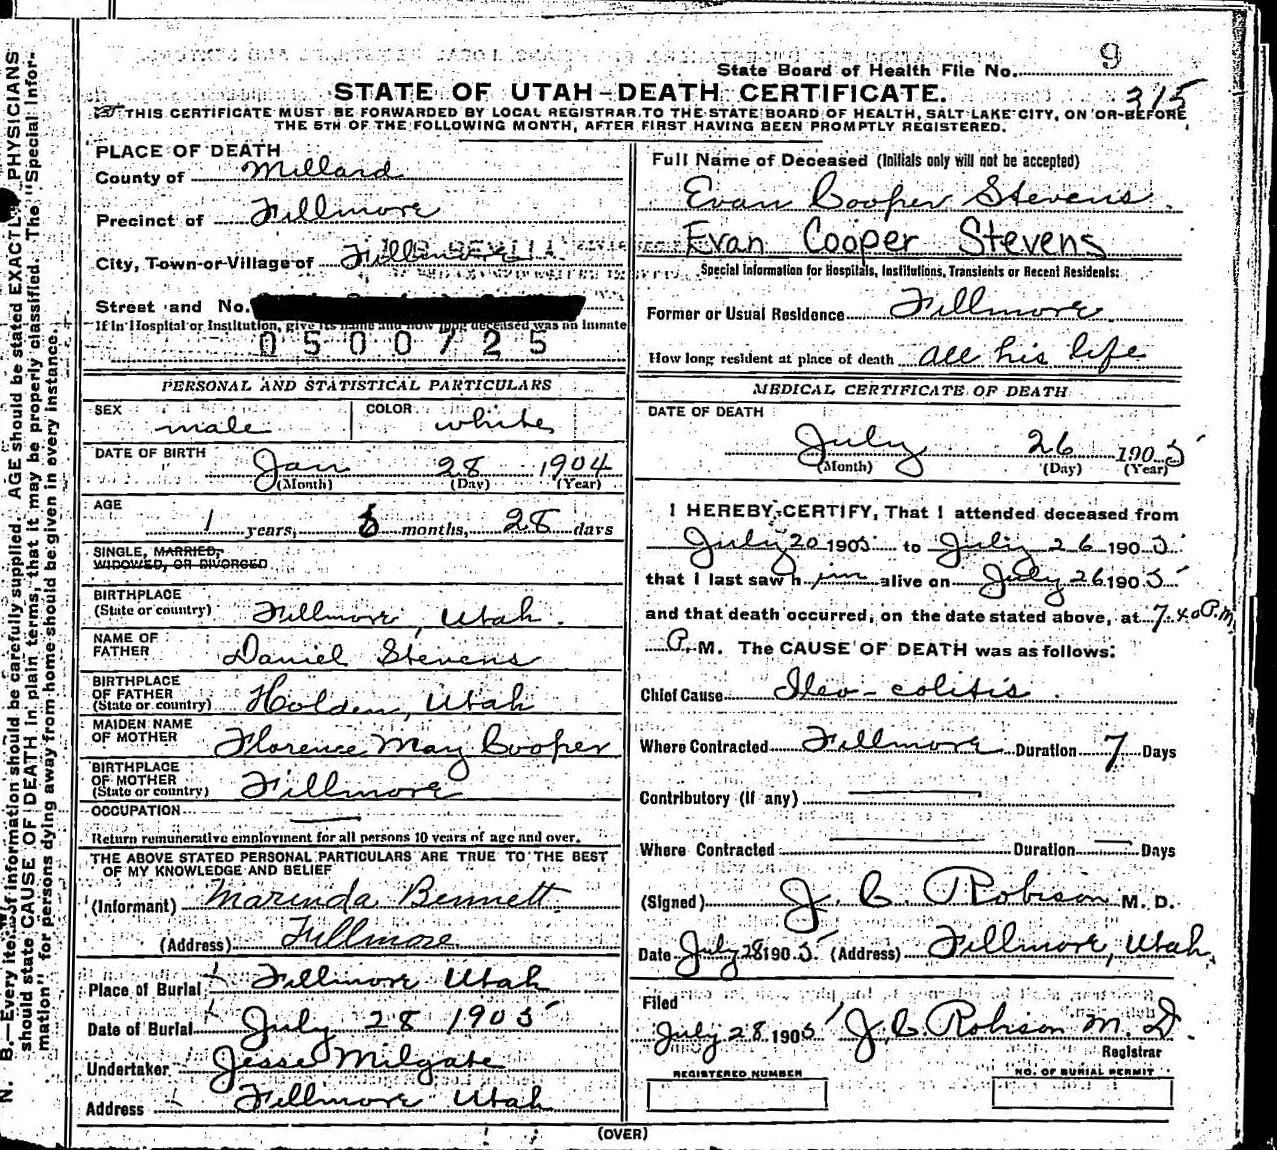 State Board of Health File No. 9
STATE OF UTAH-DEATH CERTIFICATE.
315
THIS CERTIFICATE MUST BE FORWARDED BY LOCAL REGISTRAR TO THE STATE BOARD OF HEALTH, SALT LAKE CITY, ON OR BEFORE
THE 5TH OF THE FOLLOWING MONTH, AFTER FIRST HAVING BEEN PROMPTLY REGISTERED.
PLACE OF DEATH
County of Millard
Precinct of Fillmore
City, Town or Village of Fillmore
Street and No.
If in Hospital or Institution, give its name and how long deceased was an inmate
0500725
PERSONAL AND STATISTICAL PARTICULARS
SEX male
COLOR white
DATE OF BIRTH Jan 28 1904
(Month) (Day) (Year)
AGE 1 years, months, 28 days
SINGLE, MARRIED,
WIDOWED, OR DIVORCED
BIRTHPLACE
(State or country) Fillmore, Utah.
NAME OF
FATHER Daniel Stevens
BIRTHPLACE
OF FATHER
(State or country) Holden, Utah
MAIDEN NAME
OF MOTHER Florence May Cooper
BIRTHPLACE
OF MOTHER
(State or country) Fillmore
OCCUPATION
Return remunerative employment for all persons 10 years of age and over.
THE ABOVE STATED PERSONAL PARTICULARS ARE TRUE TO THE BEST
OF MY KNOWLEDGE AND BELIEF
(Informant) Marinda Bennett
(Address) Fillmore
Place of Burial Fillmore Utah
Date of Burial July 28 1905
Undertaker Jesse Milgate
Address Fillmore Utah
Full Name of Deceased (Initials only will not be accepted)
Evan Cooper Stevens.
Evan Cooper Stevens
Special Information for Hospitals, Institutions, Transients or Recent Residents:
Former or Usual Residence Fillmore
How long resident at place of death all his life
MEDICAL CERTIFICATE OF DEATH
DATE OF DEATH
July 26 1905
(Month) (Day) (Year)
I HEREBY CERTIFY, That I attended deceased from
July 20 1905 to July 26 1905
that I last saw him alive on July 26 1905
and that death occurred, on the date stated above, at 7.40 P.M,
P. M. The CAUSE OF DEATH was as follows:
Chief Cause Ileo-colitis.
Where Contracted Fillmore Duration 7 Days
Contributory (if any)
Where Contracted Duration Days
(Signed) J. C. Robison M. D.
Date July 28 1905. (Address) Fillmore, Utah.
Filed
July 28 1905 J. C. Robison M. D.
Registrar
REGISTERED NUMBER
NO. OF BURIAL PERMIT
(OVER)
N. B.—Every item of information should be carefully supplied. AGE should be stated EXACTLY. PHYSICIANS
should state CAUSE OF DEATH in plain terms, that it may be properly classified. The "Special Infor-
mation" for persons dying away from home should be given in every instance.